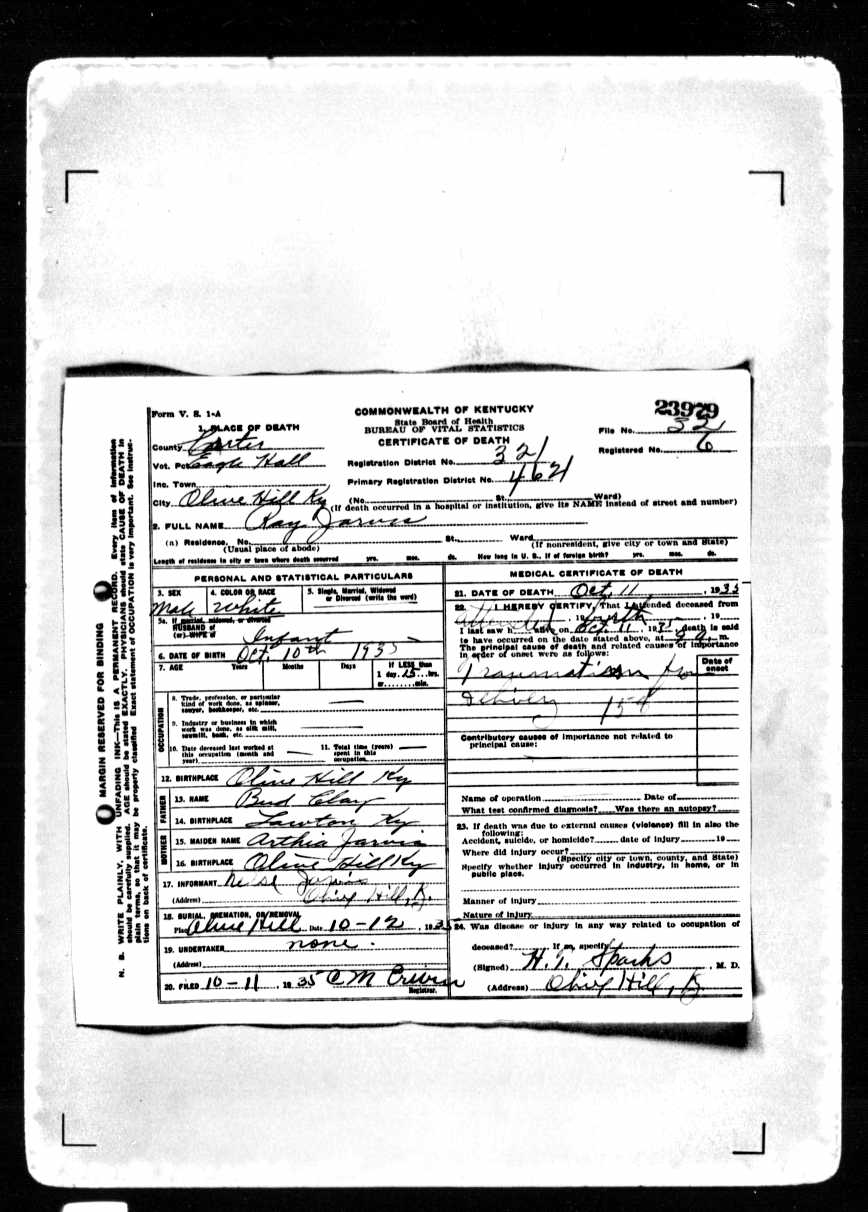 Form V. S. 1-A
COMMONWEALTH OF KENTUCKY
State Board of Health
BUREAU OF VITAL STATISTICS
CERTIFICATE OF DEATH
23979
File No. 32
Registered No. 6
1. PLACE OF DEATH
County Carter
Vot. Pct. Eagle Hall
Registration District No. 321
Inc. Town
Primary Registration District No. 4621
City Olive Hill Ky (No. St. Ward)
(If death occurred in a hospital or institution, give its NAME instead of street and number)
2. FULL NAME Ray Jarvis
(a) Residence. No. St. Ward
(Usual place of abode) (If nonresident, give city or town and State)
Length of residence in city or town where death occurred yrs. mos. ds. How long in U. S., if of foreign birth? yrs. mos. ds.
PERSONAL AND STATISTICAL PARTICULARS
3. SEX 4. COLOR OR RACE 5. Single, Married, Widowed or Divorced (write the word)
Male White
5a. If married, widowed, or divorced
HUSBAND of
(or) WIFE of Infant
6. DATE OF BIRTH Oct. 10th 1935
7. AGE Years Months Days If LESS than
1 day, 15 hrs.
or min.
OCCUPATION
8. Trade, profession, or particular
kind of work done, as spinner,
sawyer, bookkeeper, etc.
9. Industry or business in which
work was done, as silk mill,
sawmill, bank, etc.
10. Date deceased last worked at
this occupation (month and
year)
11. Total time (years)
spent in this
occupation
12. BIRTHPLACE Olive Hill Ky
FATHER
13. NAME Bud Clay
14. BIRTHPLACE Lawton Ky
MOTHER
15. MAIDEN NAME Arthia Jarvis
16. BIRTHPLACE Olive Hill Ky
17. INFORMANT Jarvis
(Address) Olive Hill, Ky.
18. BURIAL, CREMATION, OR REMOVAL
Place Olive Hill Date 10-12, 1935
19. UNDERTAKER none.
(Address)
20. FILED 10-11, 1935 C M Erwin
Registrar.
MEDICAL CERTIFICATE OF DEATH
21. DATE OF DEATH Oct. 11, 1935
22. I HEREBY CERTIFY, That I attended deceased from
Attended, 19 birth, 19
I last saw h alive on Oct. 11, 1935 death is said
to have occurred on the date stated above, at m.
The principal cause of death and related causes of importance
in order of onset were as follows:
Date of
onset
from
debility 158
Contributory causes of importance not related to
principal cause:
Name of operation Date of
What test confirmed diagnosis? Was there an autopsy?
23. If death was due to external causes (violence) fill in also the
following:
Accident, suicide, or homicide? date of injury 19
Where did injury occur?
(Specify city or town, county, and State)
Specify whether injury occurred in industry, in home, or in
public place.
Manner of injury
Nature of injury
24. Was disease or injury in any way related to occupation of
deceased? If so, specify
(Signed) H. T. Sparks, M. D.
(Address) Olive Hill, Ky
MARGIN RESERVED FOR BINDING
N. B. WRITE PLAINLY, WITH UNFADING INK—THIS IS A PERMANENT RECORD. Every item of information
should be carefully supplied. AGE should be stated EXACTLY. PHYSICIANS should state CAUSE OF DEATH in
plain terms, so that it may be properly classified. Exact statement of OCCUPATION is very important. See instruc-
tions on back of certificate.